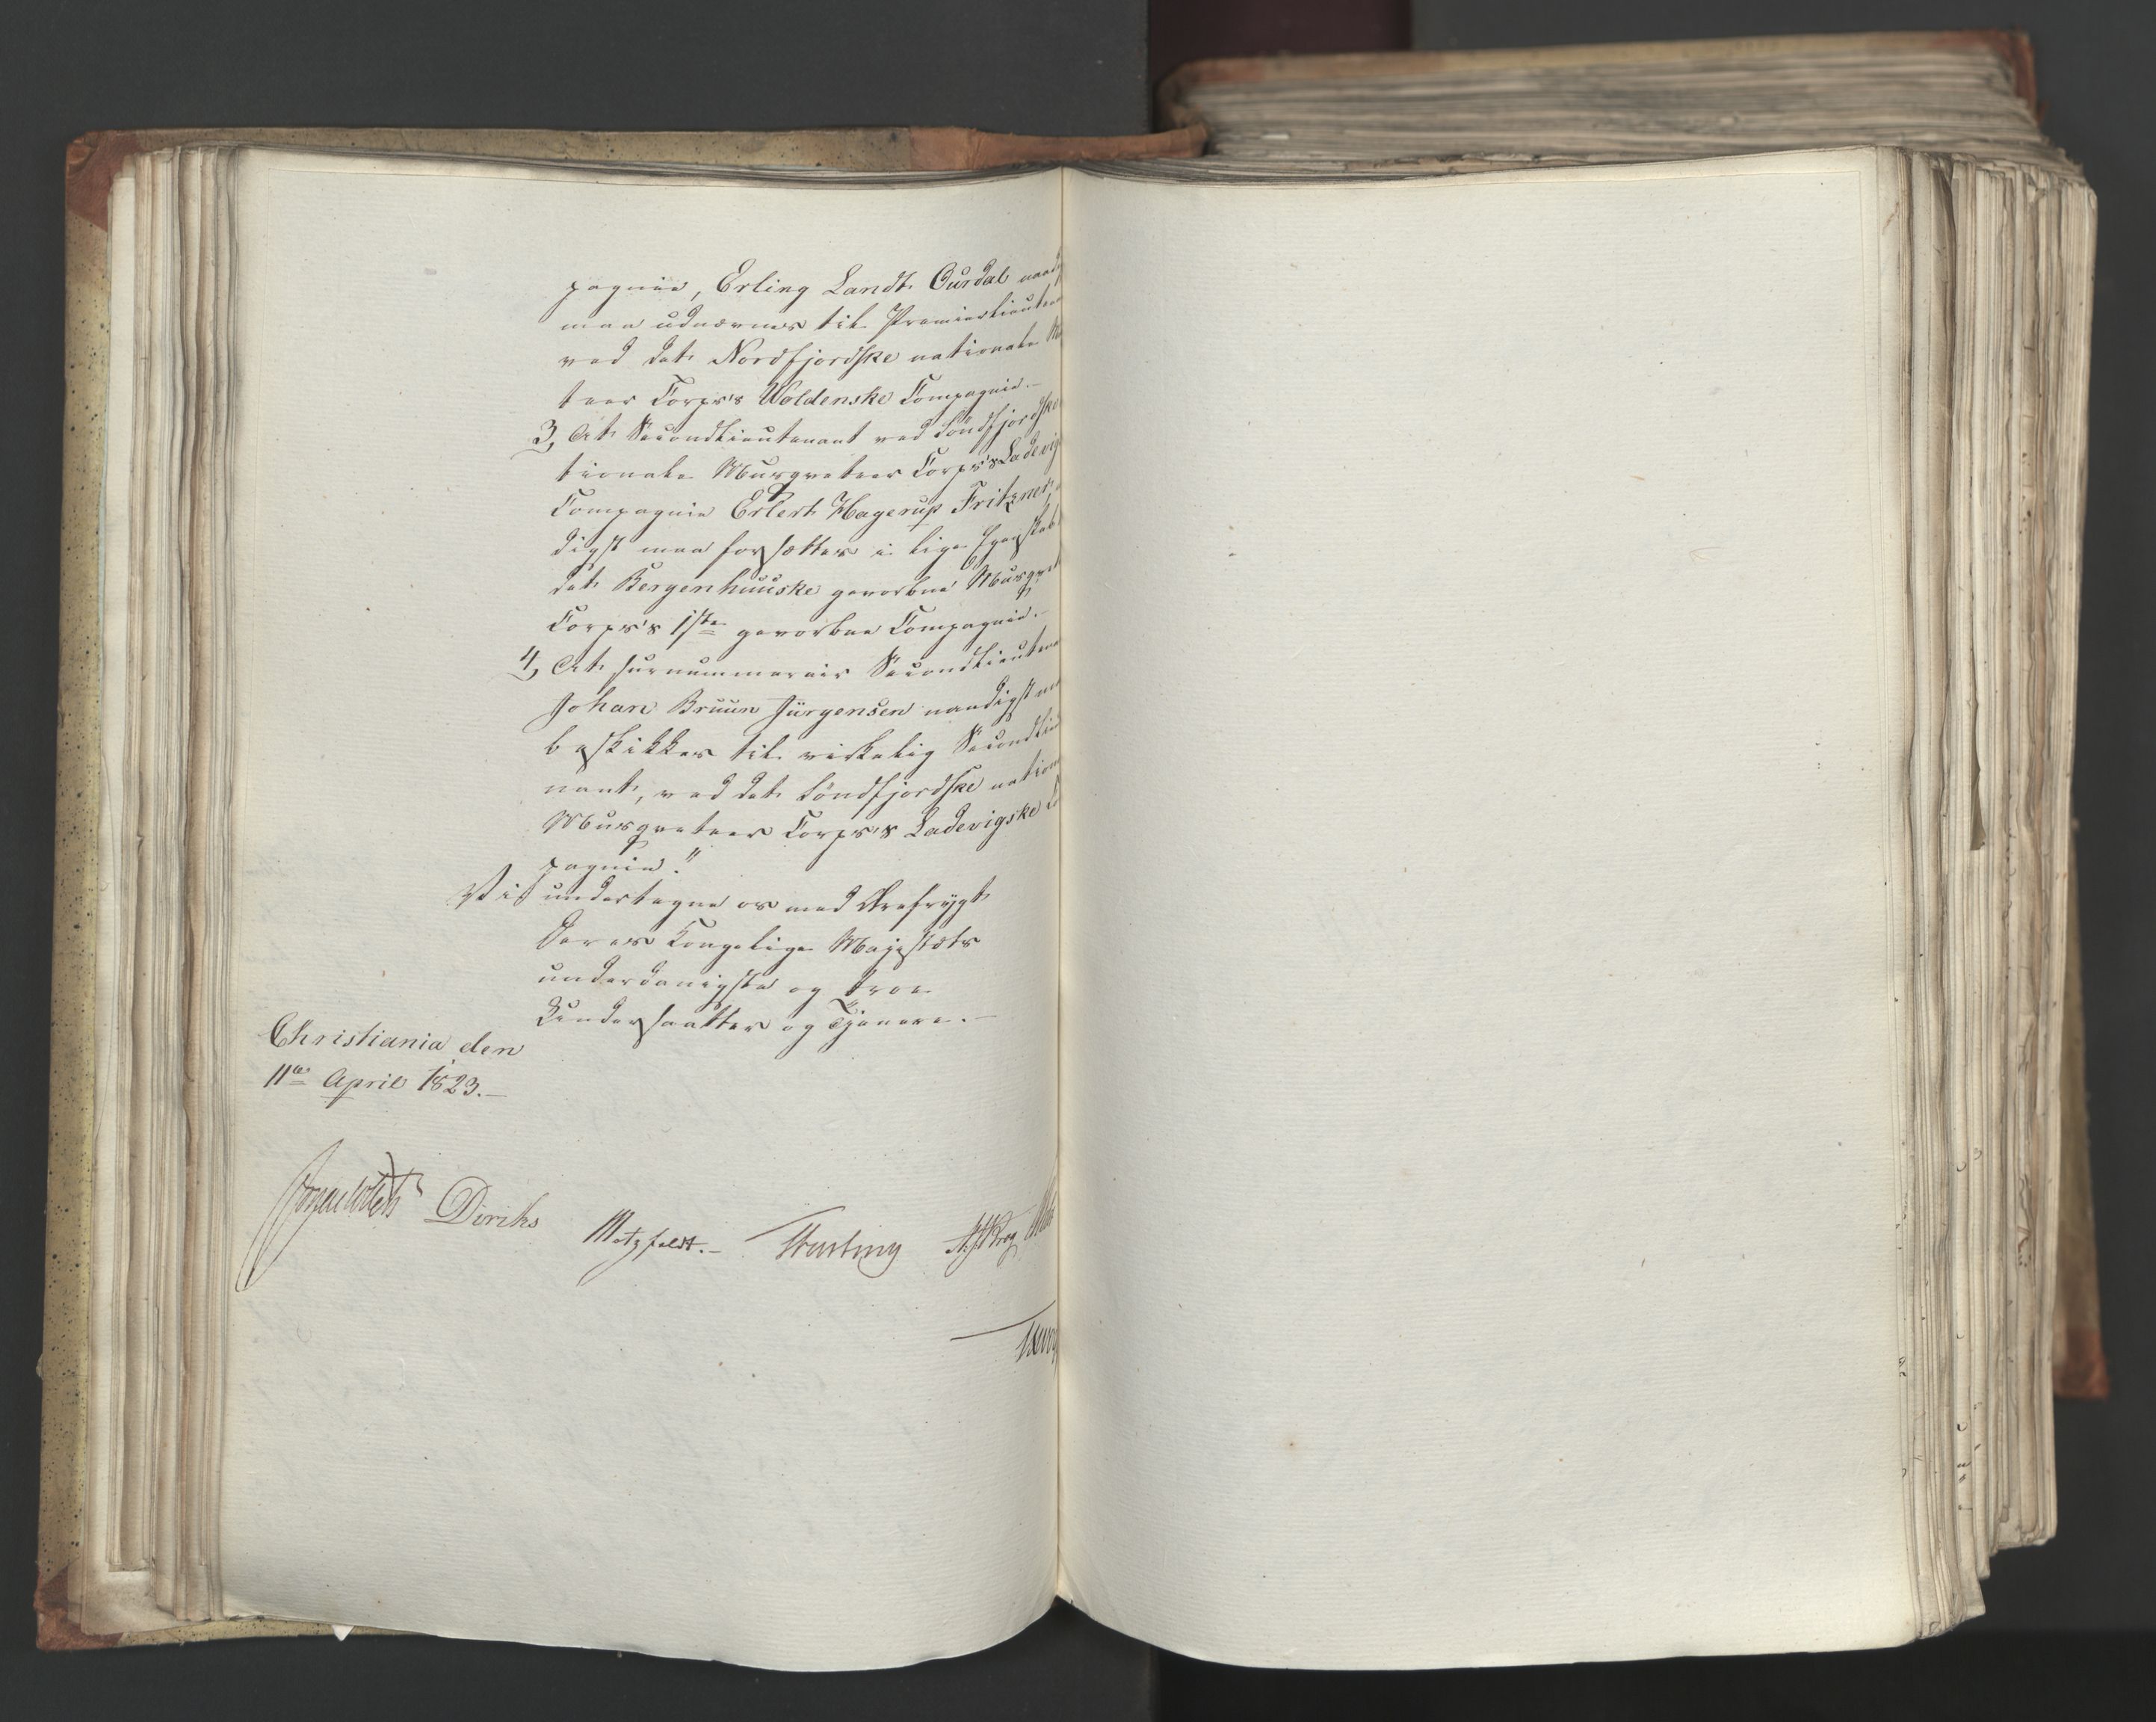 pagnie, Erling Landt Ourdal naad
maa udnævnes til Premierlieuten
ved det Nordfjordske nationale M
teer Corps's Woldenske Compagnie.-
3, At Secondlieutenant ved Söndfjordske
tionale Musqveteer Corps's Ladevig
Compagnie Eilert Hagerup Fritzner,
digst maa forsættes i lige Egenskab
det Bergenhuuske gevorbne Musqvet
Corps's 1ste gevorbne Compagnie.-
4, At surnummerair Secondlieuten
Johan Bruun Jürgensen naadigst
beskikkes til virkelig Secondlieu
nant, ved det Söndfjordske nation
Musqveteer Corps's Ladevigske
pagnie."
Vi undertegne os med Ærefrygt
Deres Kongelige Majestæts
underdanigste og troe
Undersaatter og Tjenere.-
Christiania den
11te April 1823.-
Diriks
Motzfeldt.-